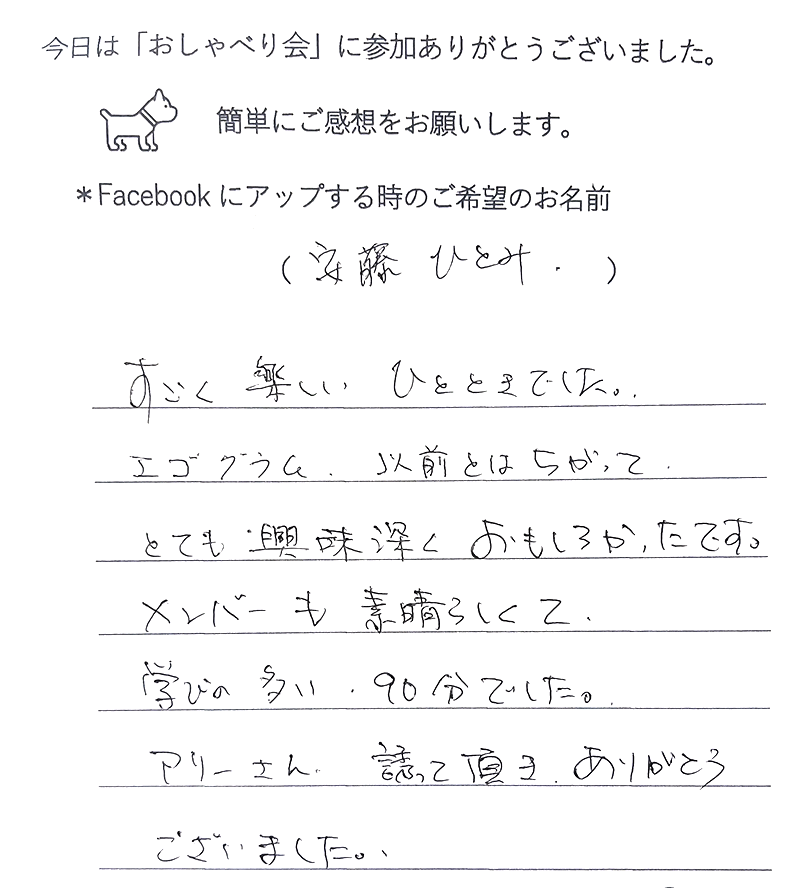 今日は「おしゃべり会」に参加ありがとうございました。
簡単にご感想をお願いします。
＊Facebookにアップする時のご希望のお名前
（安藤 ひとみ. ）
すごく 楽しい ひとときでした。
エゴグラム. 以前とは ちがって.
とても 興味深く おもしろかったです。
メンバーも 素晴らしくて.
学びの 多い. 90分でした。
アリーさん. 誘って頂き. ありがとう
ございました。